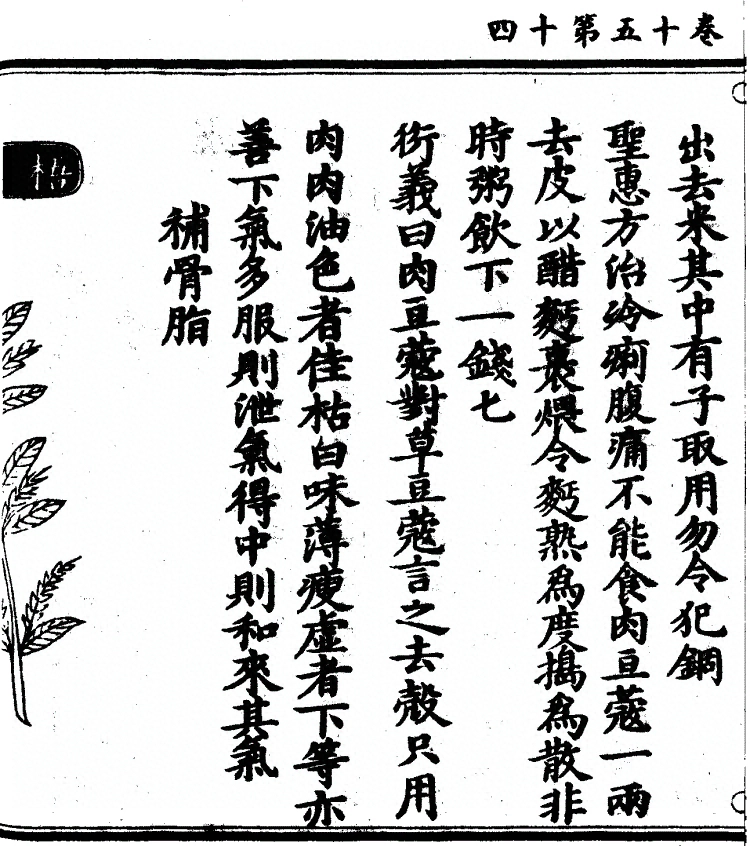 卷十五第十四
出去米其中有子取用勿令犯鋼
聖惠方治冷痢腹痛不能食肉豆蔻一兩
去皮以醋麪裹煨令麪熟爲度搗爲散非
時粥飲下一錢匕
衍義曰肉豆蔻對草豆蔻言之去殼只用
肉肉油色者佳枯白味薄瘦虛者下等亦
善下氣多服則泄氣得中則和來其氣
補骨脂